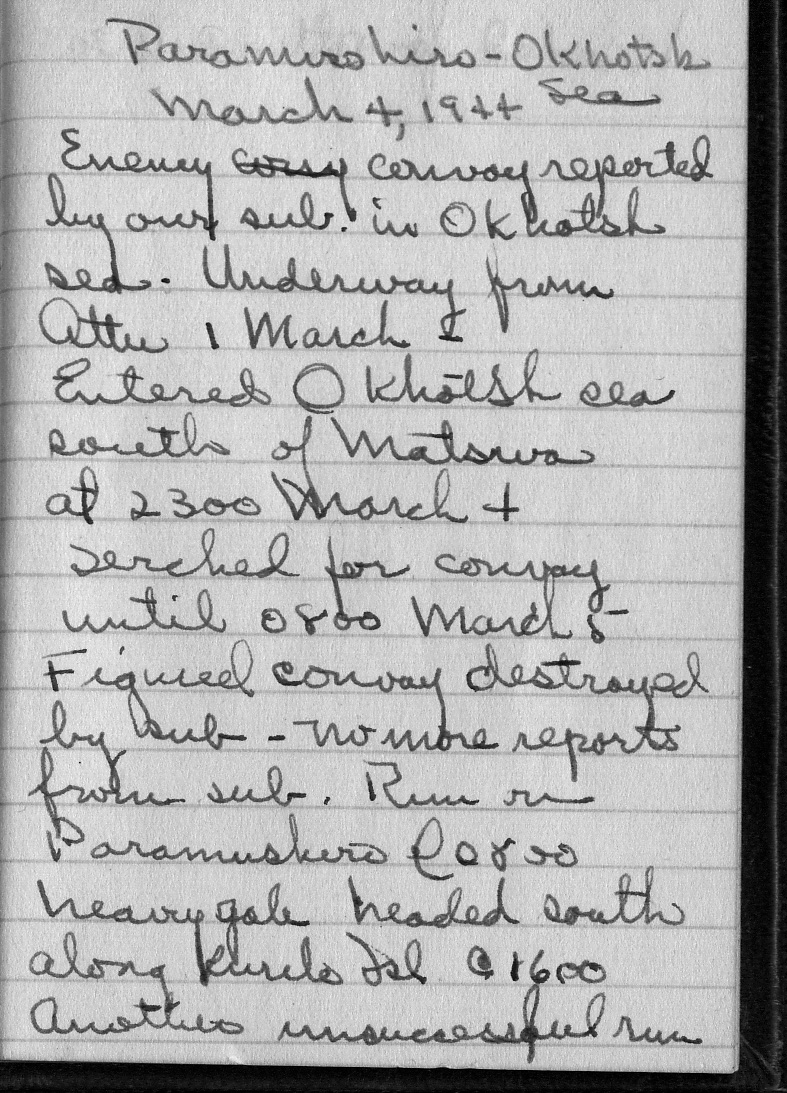 Paramuroshiro - Okhotsk
March 4, 1944 Sea
Enemy convoy reported
by our sub. in Okhotsk
sea. Underway from
Attu 1 March
Entered Okhotsk sea
south of Matsuwa
at 2300 March 4
serched for convoy
until 0800 March 5
Figured convoy destroyed
by sub - no more reports
from sub. Run on
Paramushero @ 0800
heavy gale headed south
along Kurile Isl @ 1600
Another unsuccessful run